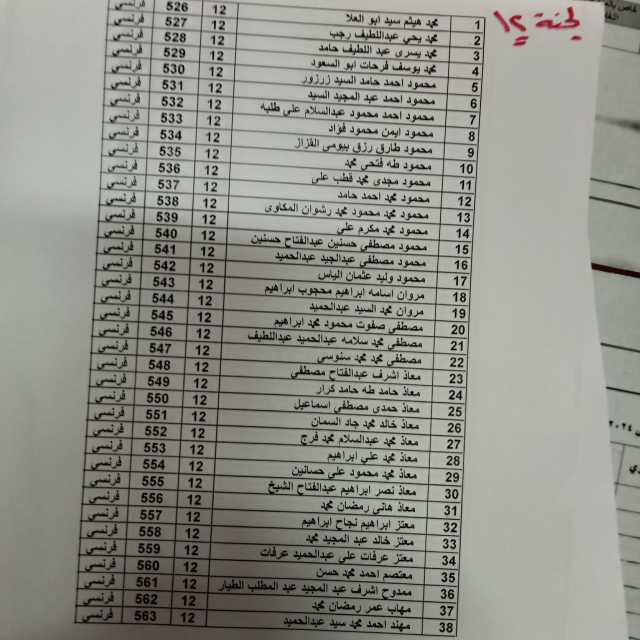 لجنة ١٢
1 محمد هيثم سيد ابو العلا 12 526 فرنسي
2 محمد يحي عبداللطيف رجب 12 527 فرنسي
3 محمد يسرى عبد اللطيف حامد 12 528 فرنسي
4 محمد يوسف فرحات ابو السعود 12 529 فرنسي
5 محمود احمد حامد السيد زرزور 12 530 فرنسي
6 محمود احمد عبد المجيد السيد 12 531 فرنسي
7 محمود احمد محمود عبدالسلام علي طلبه 12 532 فرنسي
8 محمود ايمن محمود فؤاد 12 533 فرنسي
9 محمود طارق رزق بيومى القزاز 12 534 فرنسي
10 محمود طه فتحي محمد 12 535 فرنسي
11 محمود مجدى محمد قطب على 12 536 فرنسي
12 محمود محمد احمد حامد 12 537 فرنسي
13 محمود محمد محمود محمد رشوان المكاوى 12 538 فرنسي
14 محمود محمد مكرم علي 12 539 فرنسي
15 محمود مصطفي حسنين عبدالفتاح حسنين 12 540 فرنسي
16 محمود مصطفي عبدالجيد عبدالحميد 12 541 فرنسي
17 محمود وليد عثمان الياس 12 542 فرنسي
18 مروان اسامه ابراهيم محجوب ابراهيم 12 543 فرنسي
19 مروان محمد السيد عبدالحميد 12 544 فرنسي
20 مصطفي صفوت محمود محمد ابراهيم 12 545 فرنسي
21 مصطفى محمد سلامه عبدالحميد عبداللطيف 12 546 فرنسي
22 مصطفى محمد محمد سنوسي 12 547 فرنسي
23 معاذ اشرف عبدالفتاح مصطفي 12 548 فرنسي
24 معاذ حامد طه حامد كرار 12 549 فرنسي
25 معاذ حمدى مصطفي اسماعيل 12 550 فرنسي
26 معاذ خالد محمد جاد السمان 12 551 فرنسي
27 معاذ محمد عبدالسلام محمد فرج 12 552 فرنسي
28 معاذ محمد علي ابراهيم 12 553 فرنسي
29 معاذ محمد محمود علي حسانين 12 554 فرنسي
30 معاذ نصر ابراهيم عبدالفتاح الشيخ 12 555 فرنسي
31 معاذ هانى رمضان محمد 12 556 فرنسي
32 معتز ابراهيم نجاح ابراهيم 12 557 فرنسي
33 معتز خالد عبد المجيد محمد 12 558 فرنسي
34 معتز عرفات على عبدالحميد عرفات 12 559 فرنسي
35 معتصم احمد محمد حسن 12 560 فرنسي
36 ممدوح اشرف عبد المجيد عبد المطلب الطيار 12 561 فرنسي
37 مهاب عمر رمضان محمد 12 562 فرنسي
38 مهند احمد محمد سيد عبدالحميد 12 563 فرنسي